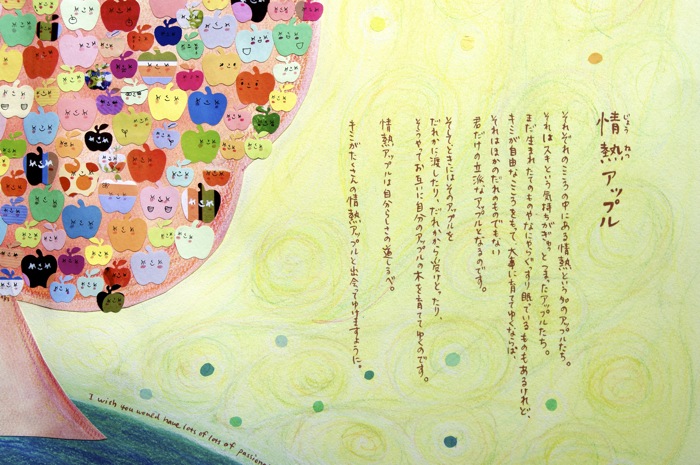 情熱アップル
じょう ねつ
それぞれのこころの中にある情熱という名のアップルたち。
それはスキという気持ちがぎゅっとつまったアップルたち。
まだ生まれたてのものやなにやらぐっすり眠っているものもあるけれど、
きミが自由なこころをもって、大事に育ててゆくならば、
それはほかのだれのものでもない
君だけの立派なアップルとなるのです。
そしてときにはそのアップルを
だれかに渡したり、だれかから受けとったり、
そうやってお互いに自分のアップルの木を育ててゆくのです。
情熱アップルは自分らしさの道しるべ。
きミがたくさんの情熱アップルと出会ってゆけますように。
I wish you would have lots of lots of passion